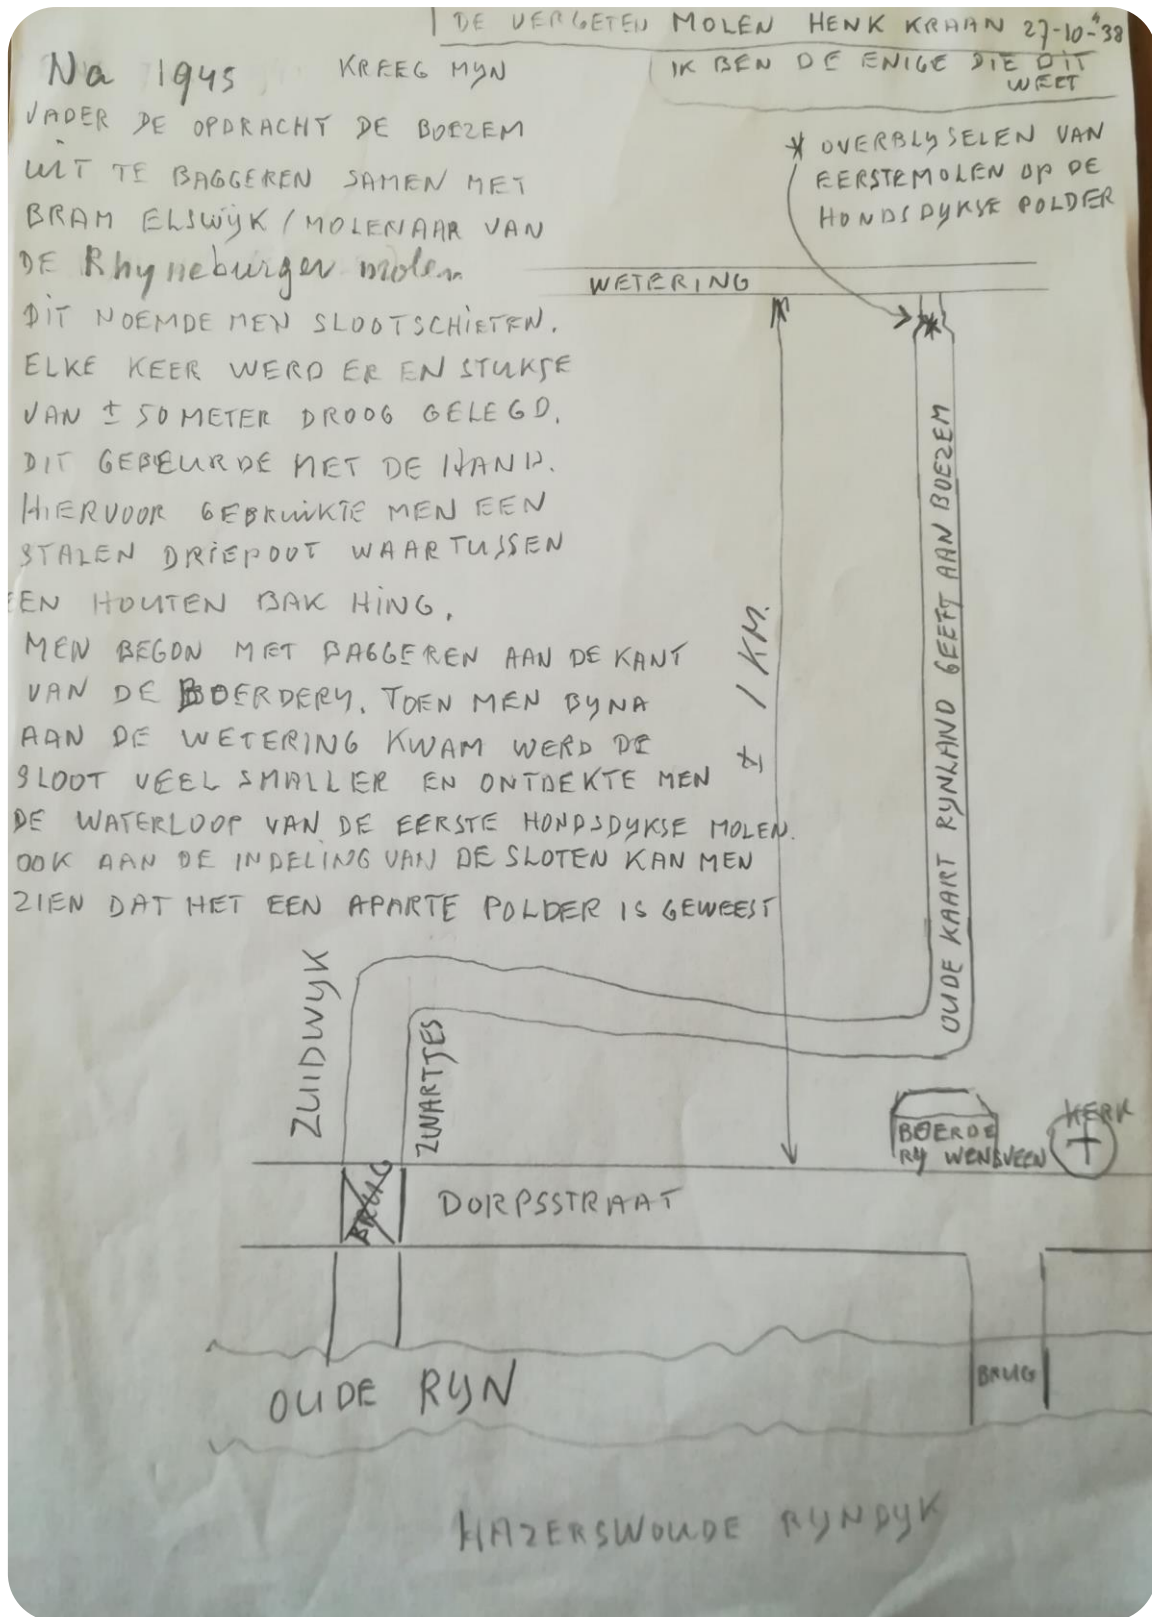 DE VERGETEN MOLEN HENK KRAAN 27-10-'38
IK BEN DE ENIGE DIE DIT
WEET
Na 1945 KREEG MYN
VADER DE OPDRACHT DE BOEZEM
UIT TE BAGGEREN SAMEN MET
BRAM ELSWIJK / MOLENAAR VAN
DE Rhyneburger molen
DIT NOEMDE MEN SLOOTSCHIETEN.
ELKE KEER WERD ER EN STUKJE
VAN ± 50 METER DROOG GELEGD.
DIT GEBEURDE MET DE HAND.
HIERVOOR GEBRUIKTE MEN EEN
STALEN DRIEPOOT WAARTUSSEN
EEN HOUTEN BAK HING.
MEN BEGON MET BAGGEREN AAN DE KANT
VAN DE BOERDERY. TOEN MEN BYNA
AAN DE WETERING KWAM WERD DE
SLOOT VEEL SMALLER EN ONTDEKTE MEN
DE WATERLOOP VAN DE EERSTE HONDSDYKSE MOLEN.
OOK AAN DE INDELING VAN DE SLOTEN KAN MEN
ZIEN DAT HET EEN APARTE POLDER IS GEWEEST
* OVERBLYSELEN VAN
EERSTEMOLEN OP DE
HONDSDYKSE POLDER
WETERING
*
± 1 KM.
OUDE KAART RYNLAND GEEFT AAN BOEZEM
ZUIDWYK
ZWARTJES
BOERDE
RY WENSVEEN
KERK
BRUG
DORPSSTRAAT
BRUG
OUDE RYN
HAZERSWOUDE RYNDYK